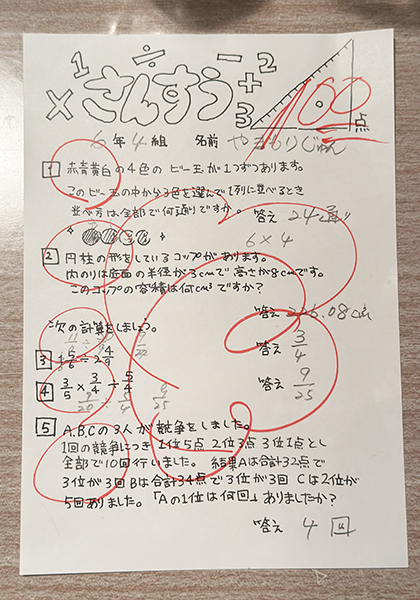 × 1 さんすう ÷ + - 2 3
100点
6年4組 名前 やまもりじゅん
1 赤青黄白の4色の ビー玉が1つずつあります。
このビー玉の中から3色を選んで1列に並べるとき
並べ方は全部で何通りですか。 答え 24通り
6×4
2 円柱の形をしているコップがあります。
内のりは底面の半径が3cmで高さが8cmです。
このコップの容積は何cm³ですか?
答え 226.08cm³
次の計算をしましょう。
3 1 5/6 ÷ 2 4/9 答え 3/4
4 3/5 × 3/4 ÷ 5/4 答え 9/25
9/20 ÷ 5/4 9/25
5 A,B,Cの3人が競争をしました。
1回の競争につき1位5点 2位3点 3位1点とし
全部で10回行いました。 結果Aは合計32点で
3位が3回 Bは合計34点で3位が3回 Cは2位が
5回ありました。「Aの1位は何回」ありましたか?
答え 4回